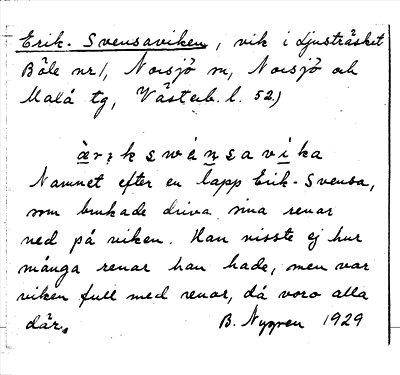 Erik-Svensaviken, vik i Ljusträsket
Böle nr 1, Norsjö sn, Norsjö och
Malå tg, Västerb. l. 52.)
Namnet efter en lapp Erik-Svensa,
som brukade driva sina renar
ned på viken. Han visste ej hur
många renar han hade, men var
viken full med renar, då voro alla
där.
B. Nygren 1929